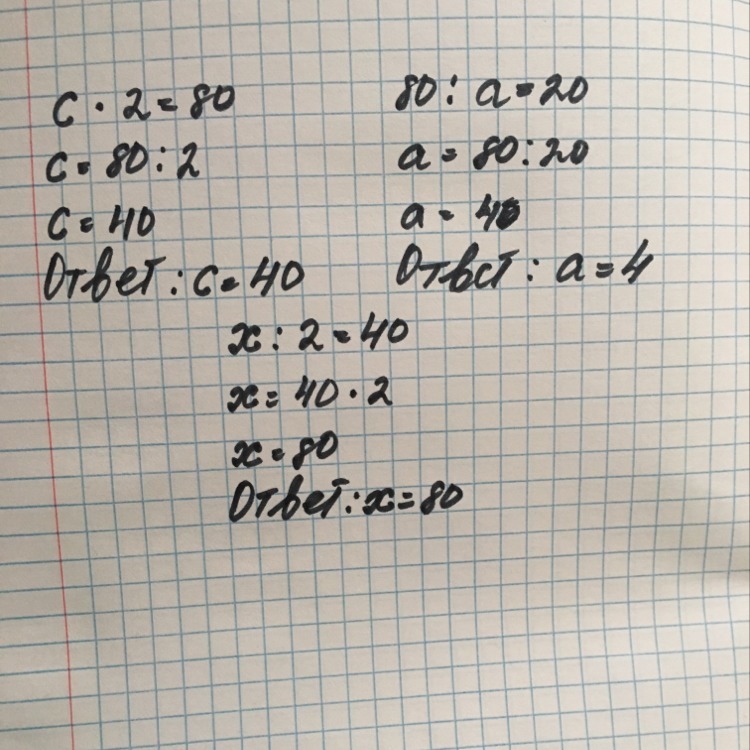 c · 2 = 80
c = 80 : 2
c = 40
Ответ : c = 40
80 : a = 20
a = 80 : 20
a = 40
Ответ : a = 4
x : 2 = 40
x = 40 · 2
x = 80
Ответ : x = 80